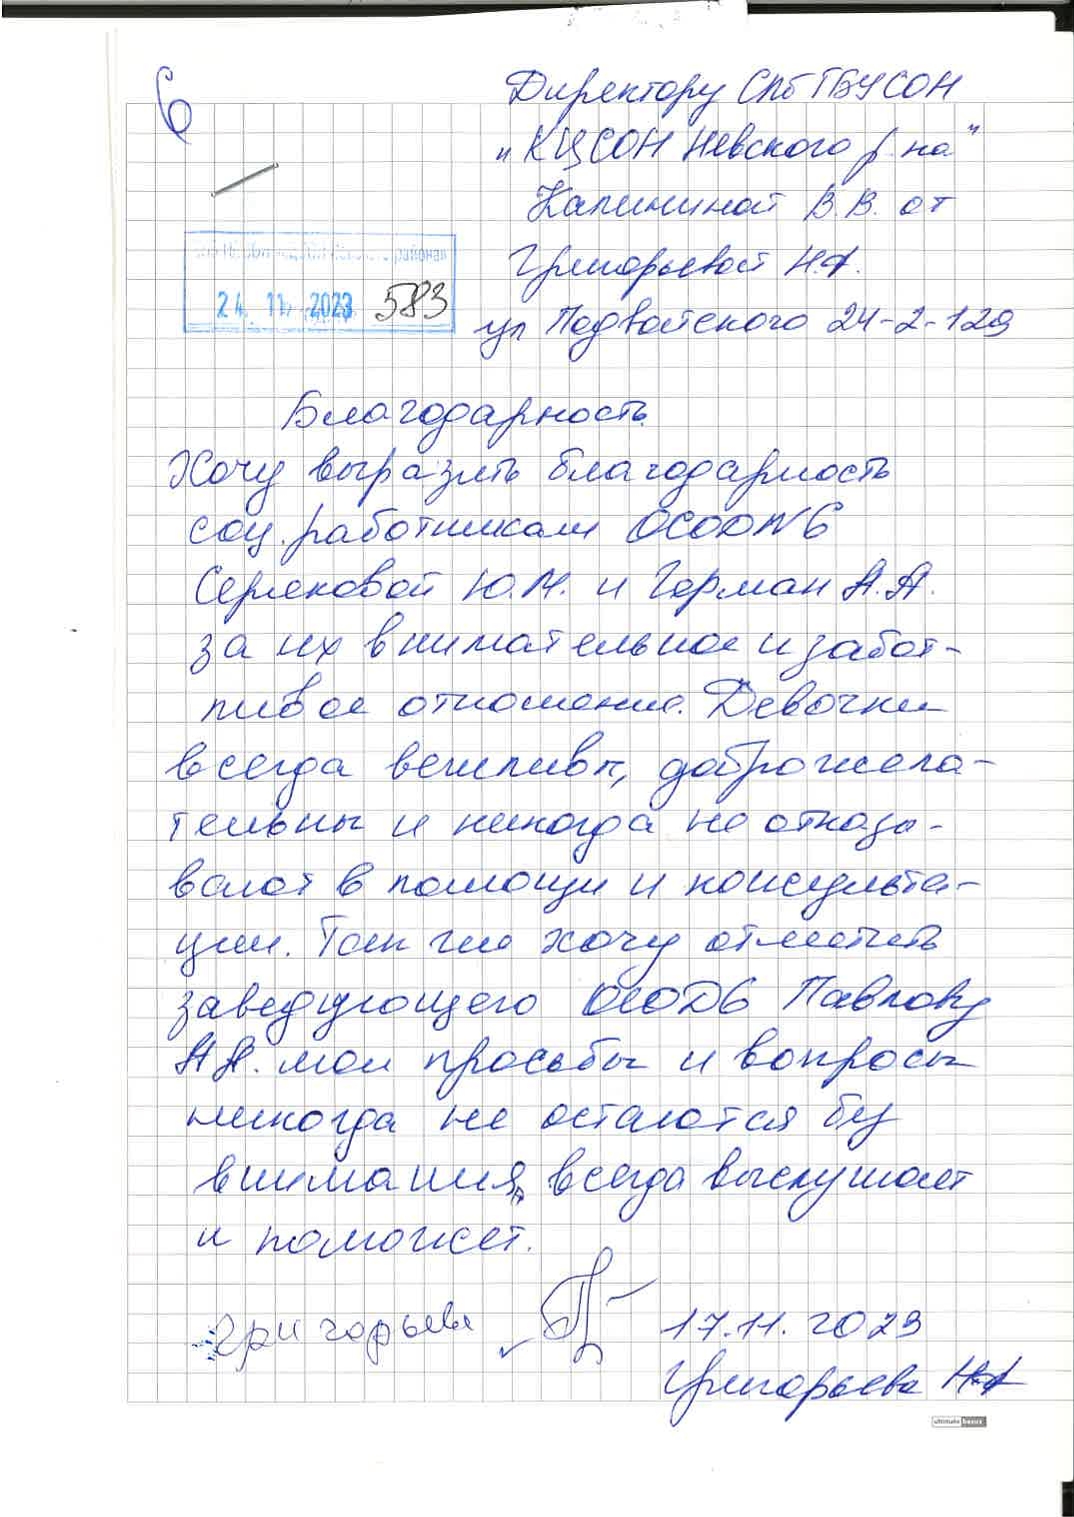 6
Директору СПб ГБУСОН
"КЦСОН Невского р-на"
Калининой В.В. от
Григорьевой Н.А.
ул Подвойского 24-2-129
района"
24. 11. 2023 583
Благодарность.
Хочу выразить благодарность
соц. работникам ОСОД №6
Серяковой Ю.М. и Герман А.А.
за их внимательное и забот-
ливое отношение. Девочки
всегда вежливы, доброжела-
тельны и никогда не отказы-
вают в помощи и консульта-
ции. Так же хочу отметить
заведующего ОСОД6 Павлову
А.А. мои просьбы и вопросы
никогда не остаются без
внимания, всегда выслушает
и поможет.
Григорьева 17.11.2023
Григорьева Н.А
ultimate basics